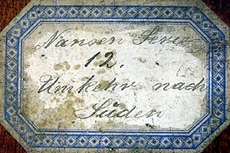 Nansen Serie
12.
Umkehr nach
Süden